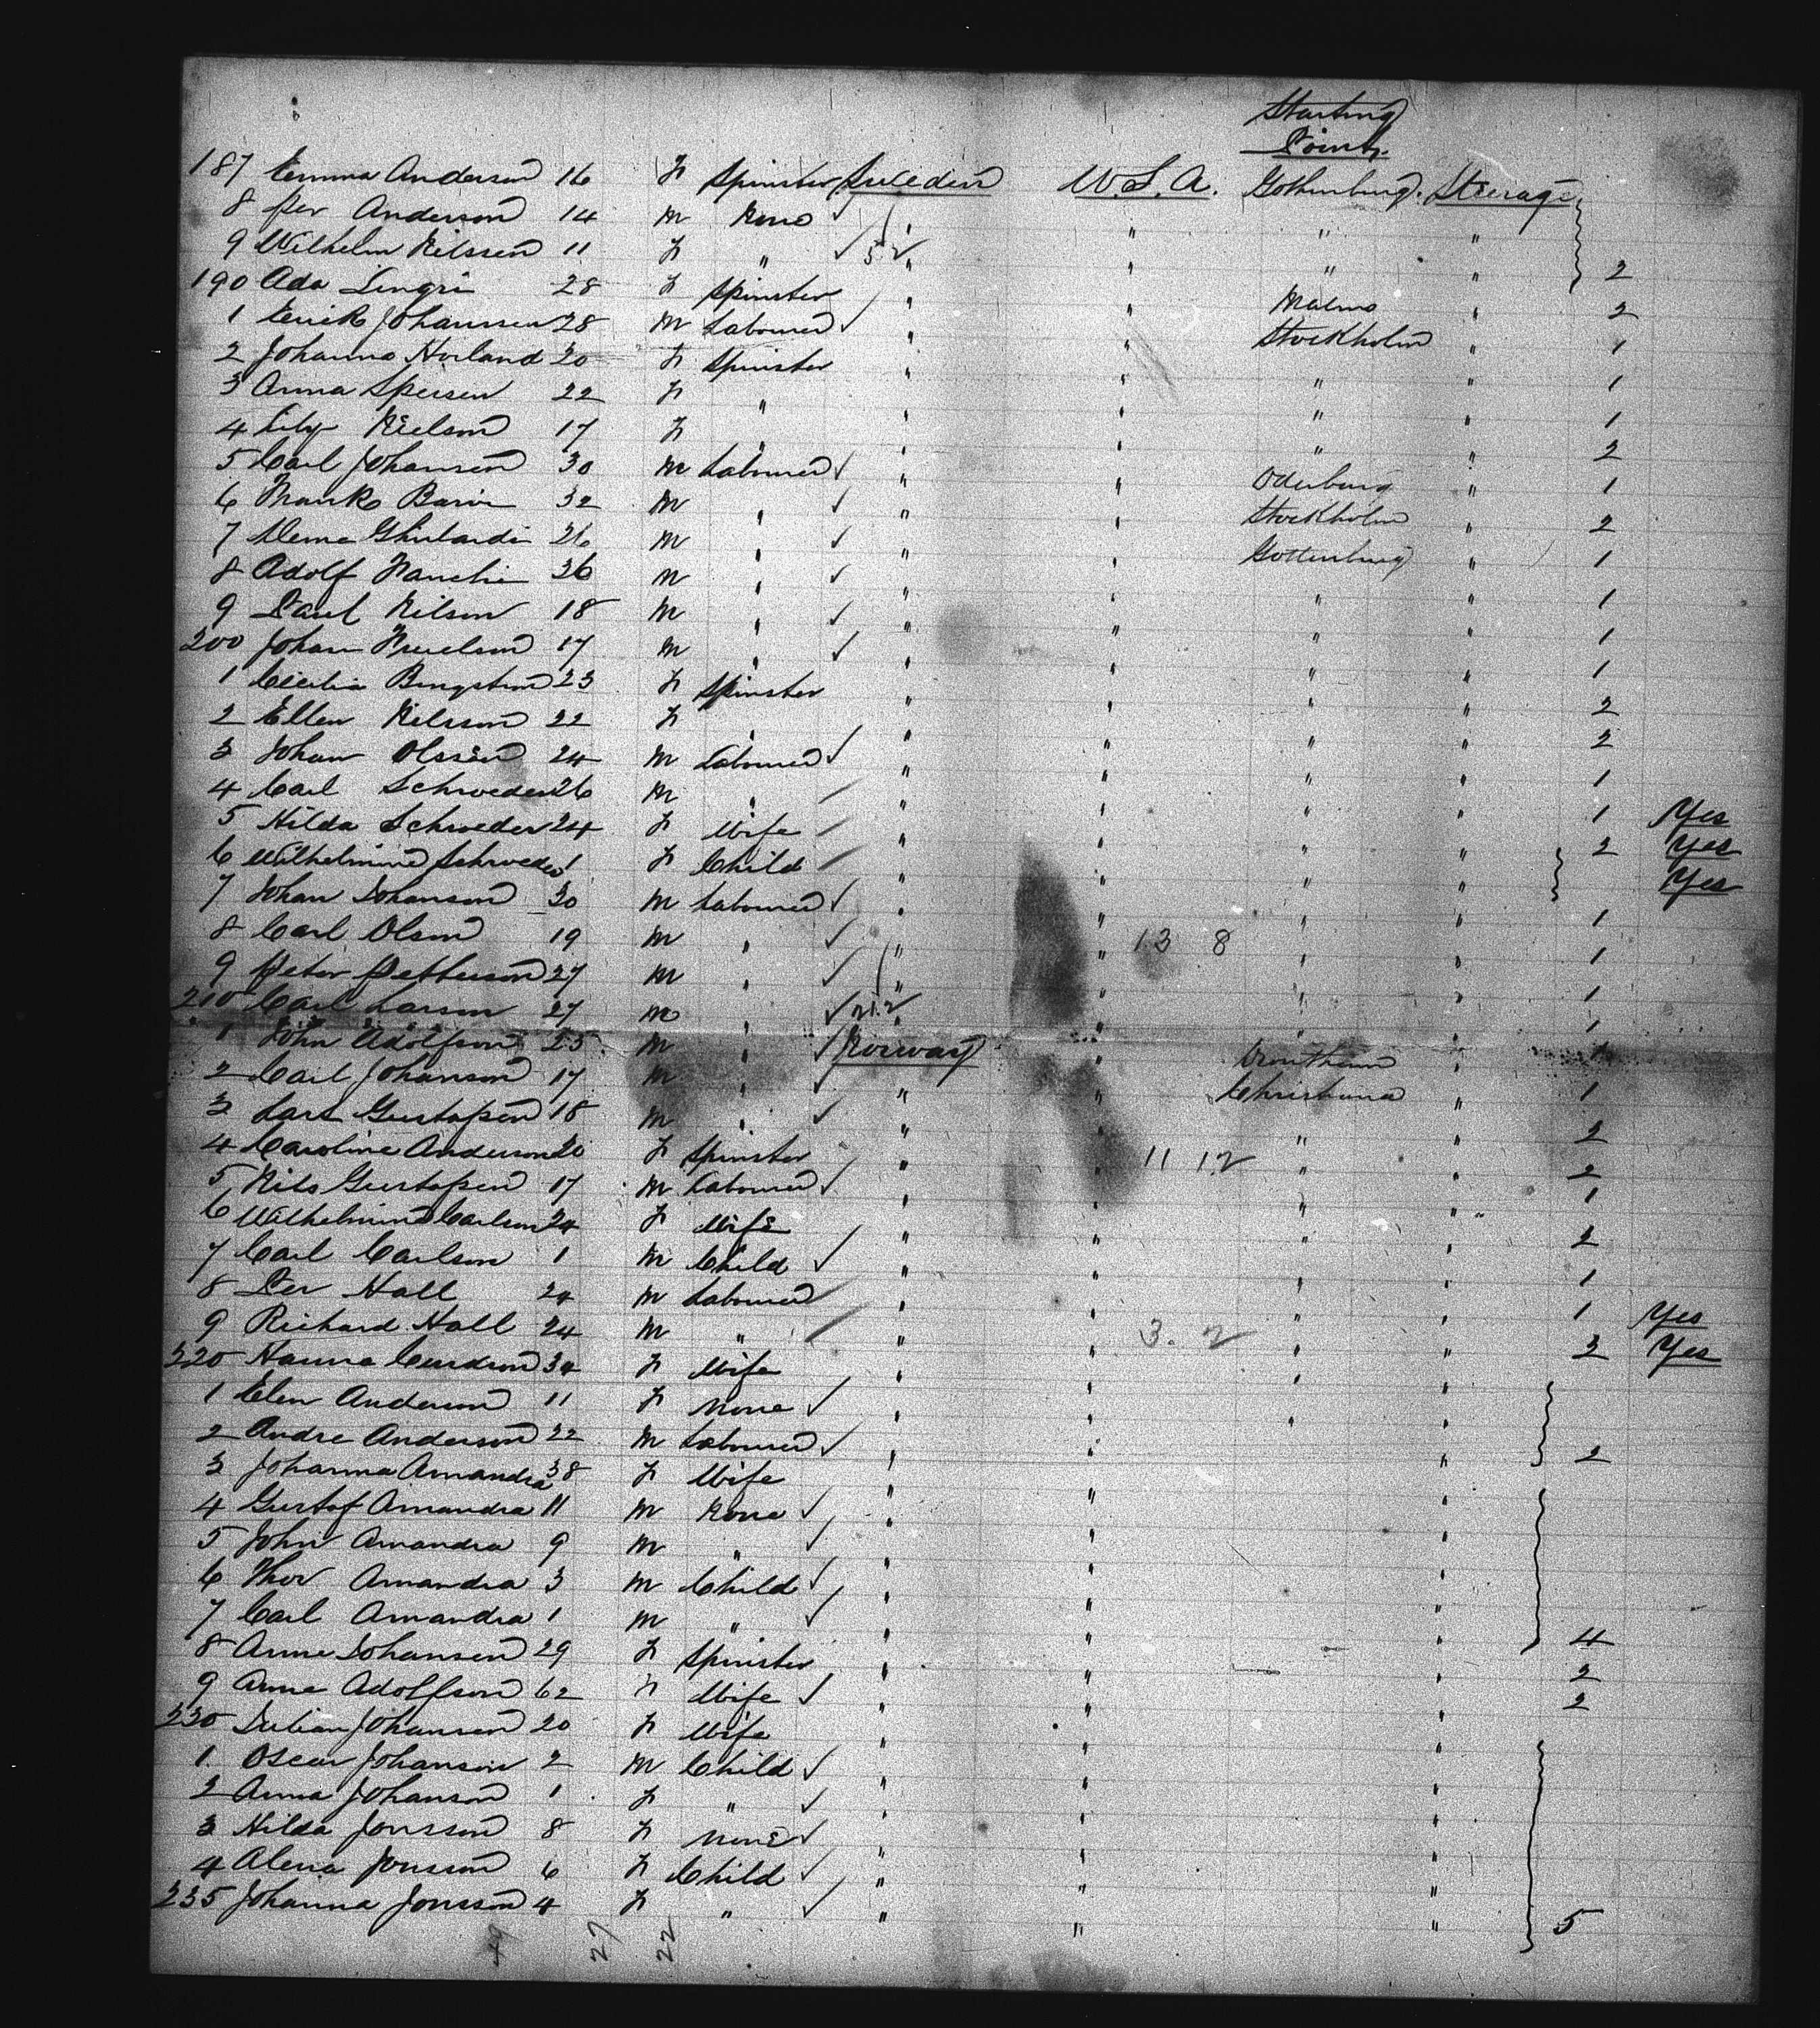 Starting
Point.
187 Emma Anderson 16 F Spinster Sweden U.S.A. Gothenburg. Steerage
8 Per Anderson 14 M None ✓ " " " "
9 Wilhelm Nilsson 11 F " ✓ 5 2 " " " " 2
190 Ada Lingri 28 F Spinster " " Malmo " 2
1 Erik Johanssen 28 M Labourer ✓ " " Stockholm " 1
2 Johanna Horland 20 F Spinster " " " " 1
3 Anna Spersen 22 F " " " " " 1
4 Lily Nielson 17 F " " " " " 2
5 Carl Johanson 30 M Labourer ✓ " " Oderburg " 1
6 Frank Baron 32 M " ✓ " " Stockholm " 2
7 Ghilardi 26 M " ✓ " " Gottenburg " 1
8 Adolf Franchi 36 M " ✓ " " " " 1
9 Paul Nilson 18 M " ✓ " " " " 1
200 Johan 17 M " ✓ " " " " 1
1 Cecilia Bengstrom 23 F Spinster " " " " 2
2 Ellen Nelsson 22 F " " " " " 2
3 Johan Olssen 24 M Labourer ✓ " " " " 1
4 Carl Schroeder 26 M " " " " " 1 Yes
5 Hilda Schroeder 24 F Wife " " " " 2 Yes
6 Wilhelmine Schroeder 1 F Child " " " " Yes
7 Johan Johanson 30 M Labourer ✓ " " " " 1
8 Carl Olson 19 M " ✓ " " 13 8 " " 1
9 Peter Petterson 27 M " ✓ " " " " 1
210 Carl Larson 27 M " ✓ 21.2 " " " " 1
1 John Adolfson 25 M " ✓ Norway " Drontheim " 1
2 Carl Johanson 17 M " ✓ " " Christiana " 1
3 Lars Gustafsen 18 M " ✓ " " " " 2
4 Caroline Anderson 20 F Spinster " " 11 12 " " 2
5 Nils Gustafsen 17 M Labourer ✓ " " " " 1
6 Wilhelmine Carlson 24 F Wife " " " " 2
7 Carl Carlson 1 M Child ✓ " " " " 1
8 Per Hall 24 M Labourer " " " " 1 Yes
9 Richard Hall 24 M " " " 3. 2 " " 2 Yes
220 Hanna 34 F Wife " " " "
1 Elen Anderson 11 F None ✓ " " " "
2 Andre Anderson 22 M Labourer ✓ " " " 2
3 Johanna Amandra 38 F Wife " " "
4 Gustof Amandra 11 M None ✓ " " "
5 John Amandra 9 M " ✓ " " "
6 Thor Amandra 3 M Child ✓ " " "
7 Carl Amandra 1 M " ✓ " " " 4
8 Anne Johansen 29 F Spinster " " " 2
9 Anne Adolfson 62 F Wife ✓ " " " 2
230 Julian Johansen 20 F Wife " " "
1. Oscar Johanson 2 M Child ✓ " " "
2 Anna Johanson 1 F " ✓ " " "
3 Hilda Jonsson 8 F None ✓ " " "
4 Alena Jonsson 6 F Child ✓ " " "
235 Johanna Jonsson 4 F " ✓ " " " 5
49 27 22